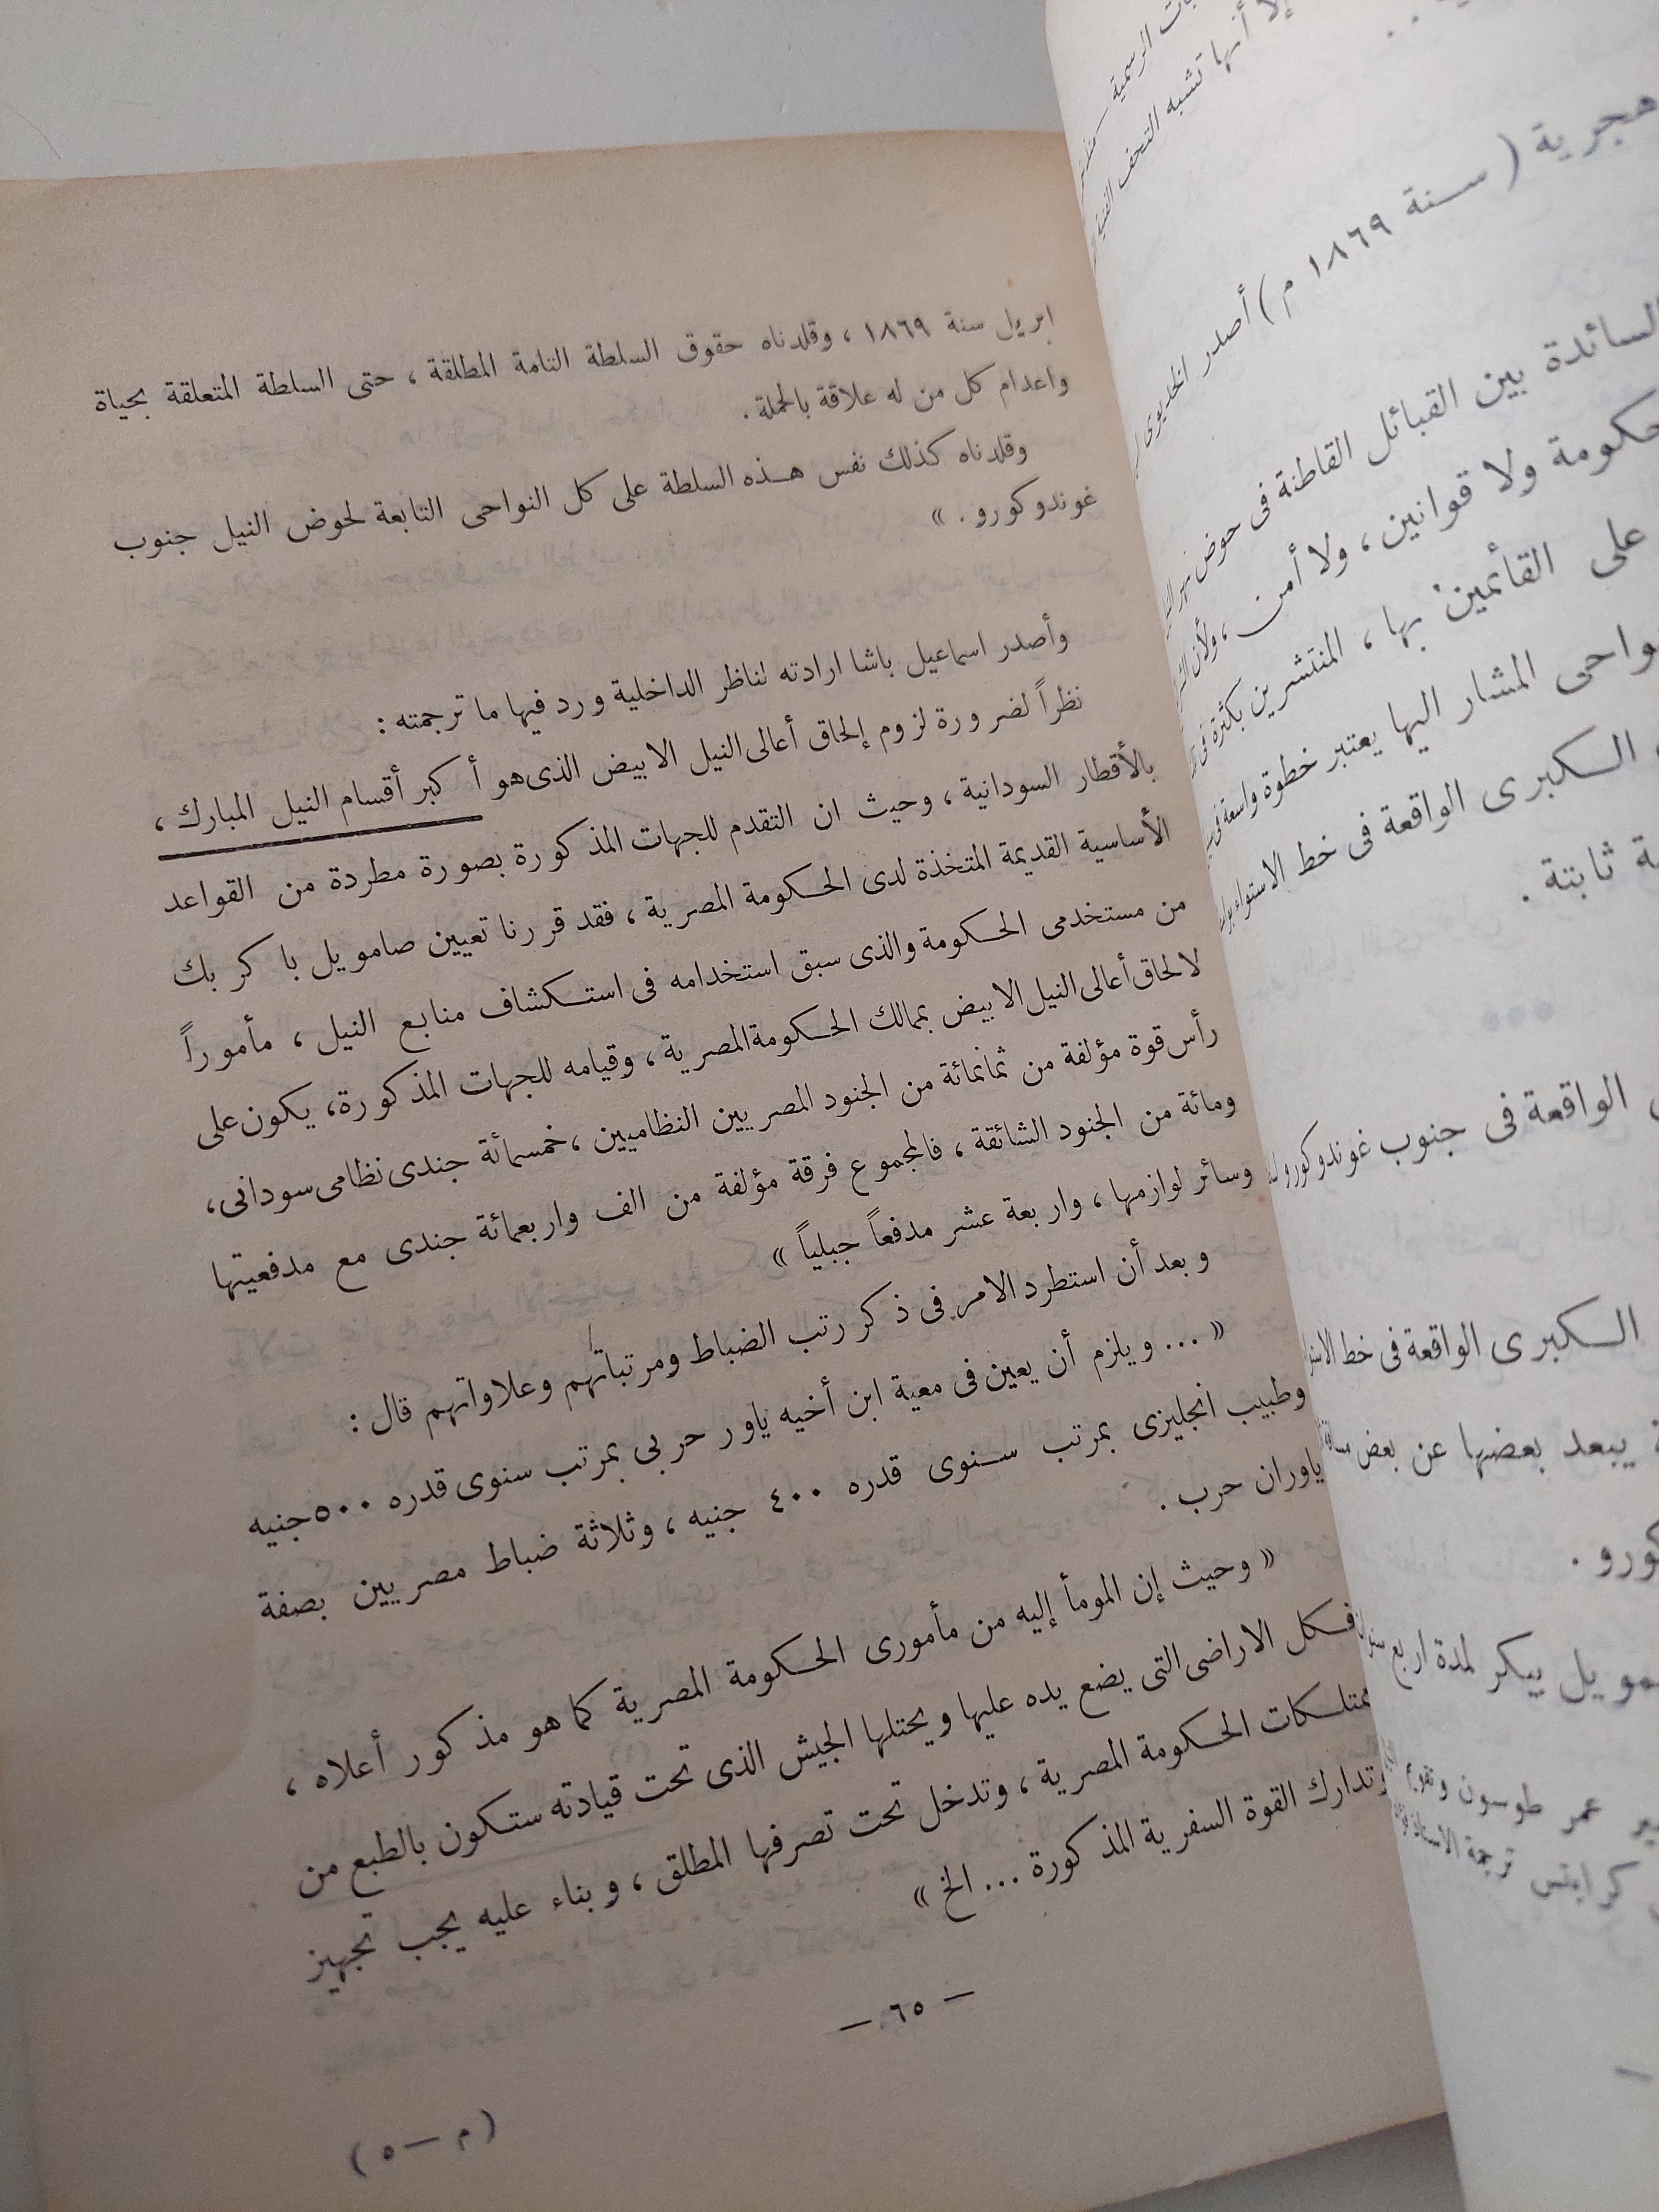 ابريل سنة ١٨٦٩ ، وقلدناه حقوق السلطة التامة المطلقة ، حتى السلطة المتعلقة بحياة
واعدام كل من له علاقة بالحملة .
وقلدناه كذلك نفس هذه السلطة على كل النواحى التابعة لحوض النيل جنوب
غوندوكورو . »
وأصدر اسماعيل باشا ارادته لناظر الداخلية ورد فيها ما ترجمته :
نظراً لضرورة لزوم إلحاق أعالى النيل الابيض الذى هو أكبر أقسام النيل المبارك ،
بالأقطار السودانية ، وحيث ان التقدم للجهات المذكورة بصورة مطردة من القواعد
الأساسية القديمة المتخذة لدى الحكومة المصرية ، فقد قررنا تعيين صامويل باكر بك
من مستخدمى الحكومة والذى سبق استخدامه فى استكشاف منابع النيل ، مأموراً
لالحاق أعالى النيل الابيض بممالك الحكومة المصرية ، وقيامه للجهات المذكورة، يكون على
رأس قوة مؤلفة من ثمانمائة من الجنود المصريين النظاميين ، خمسمائة جندى نظامى سودانى،
ومائة من الجنود الشائقة ، فالمجموع فرقة مؤلفة من الف واربعمائة جندى مع مدفعيتها
وسائر لوازمها ، واربعة عشر مدفعاً جبلياً »
وبعد أن استطرد الامر فى ذكر رتب الضباط ومرتباتهم وعلاواتهم قال :
« ... ويلزم أن يعين فى معية ابن أخيه ياور حربى بمرتب سنوى قدره ٥٠٠ جنيه
وطبيب انجليزى بمرتب سنوى قدره ٤٠٠ جنيه ، وثلاثة ضباط مصريين بصفة
ياوران حرب .
« وحيث إن المومأ إليه من مأمورى الحكومة المصرية كما هو مذكور أعلاه ،
فكل الاراضى التى يضع يده عليها ويحتلها الجيش الذى تحت قيادته ستكون بالطبع من
ممتلكات الحكومة المصرية ، وتدخل تحت تصرفها المطلق ، وبناء عليه يجب تجهيز
وتدارك القوة السفرية المذكورة ... الخ »
— ٦٥ —
( م — ٥ )
الرسمية
إلا أنها تشبه التحف الفنية
هجرية ( سنة ١٨٦٩ م ) أصدر الخديوى
السائدة بين القبائل القاطنة فى حوض نهر
حكومة ولا قوانين ، ولا أمن ، ولأن
على القائمين بها ، المنتشرين بكثرة فى
المشار اليها يعتبر خطوة واسعة فى
الكبرى الواقعة فى خط الاستواء
ثابتة .
الواقعة فى جنوب غوندوكورو
الكبرى الواقعة فى خط
يبعد بعضها عن بعض
بيكر لمدة اربع
عمر طوسون
كرابتس ترجمة الاستاذ